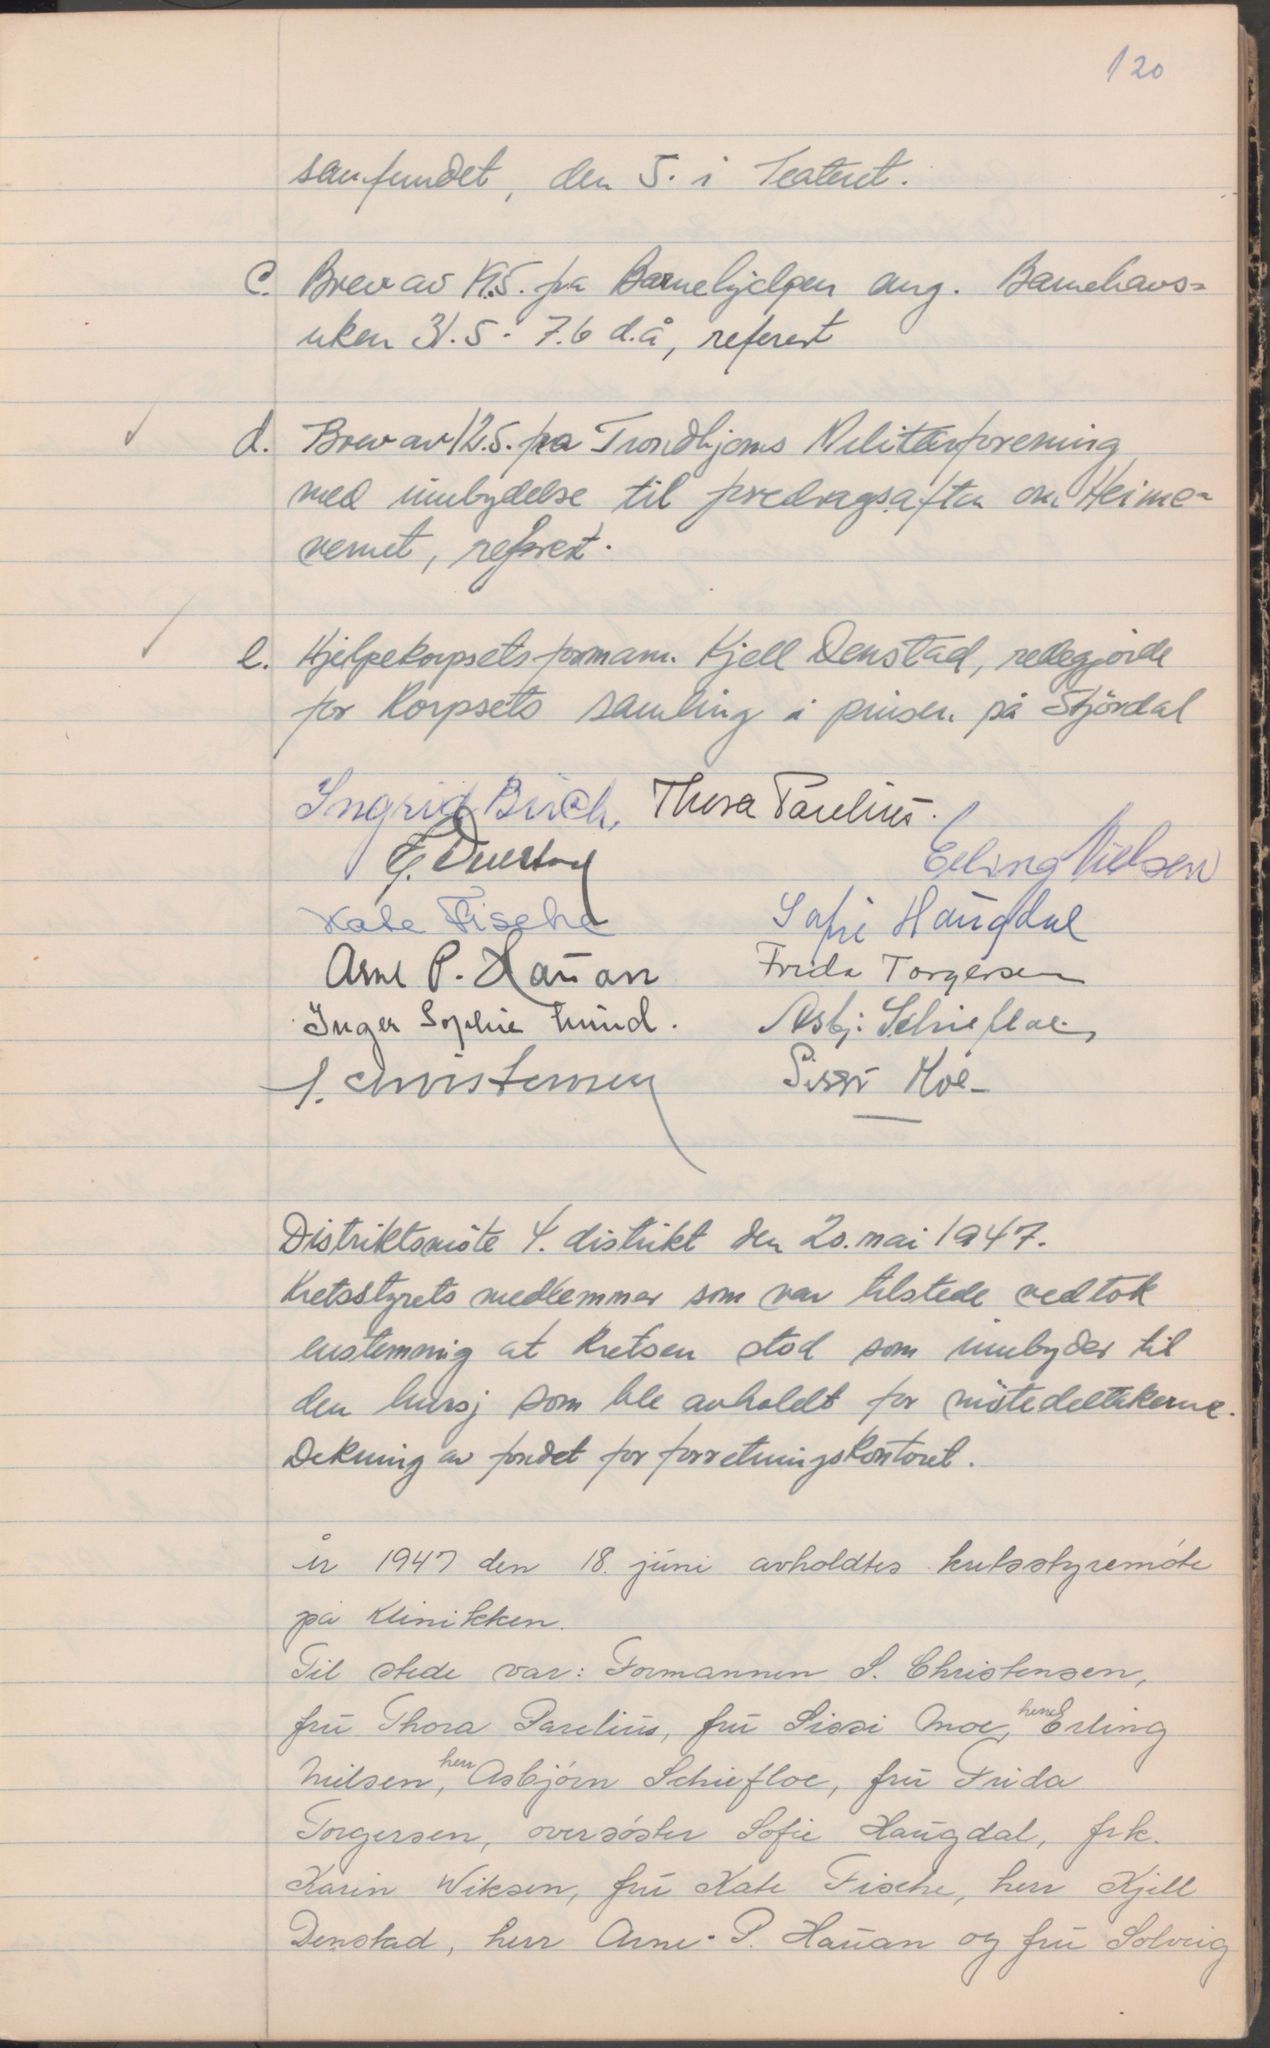 120
samfundet, den 5. i Teatret.
c. Brev av 17.5. fra Barnehjelpen ang. Barnehavs=
uken 31.5 - 7.6 d.å, referert
d. Brev av 12.5. fra Trondhjems Militærforening
med innbydelse til foredragsaften om Heime-
vernet, referert.
e. Hjelpekorpsets formann. Kjell Denstad, redegjorde
for Korpsets samling i pinsen på Stjördal
Ingrid Birch, Thora Parelius.
Erling Nielsen
Kate Fische Sofie Haugdal
Arne P. Hauan Frida Torgersen
Inger Sophie Lund. Asbj. Schiefloe,
S. Christensen Sissi Moe -
Distriktsmöte 4. distrikt den 20. mai 1947.
Kretsstyrets medlemmer som var tilstede vedtok
enstemmig at Kretsen stod som innbyder til
den lunsj som ble avholdt for mötedeltakerne.
Dekning av fondet for forretningskontoret.
År 1947 den 18. juni avholdtes kretsstyremöte
på Klinikken.
Til stede var: Formannen S. Christensen,
fru Thora Parelius, fru Sissi Moe, herr Erling
Nilsen, herr Asbjörn Schiefloe, fru Frida
Torgersen, oversöster Sofie Haugdal, frk.
Karin Wiksen, fru Kate Fische, herr Kjell
Denstad, herr Arne P. Hauan og fru Solveig